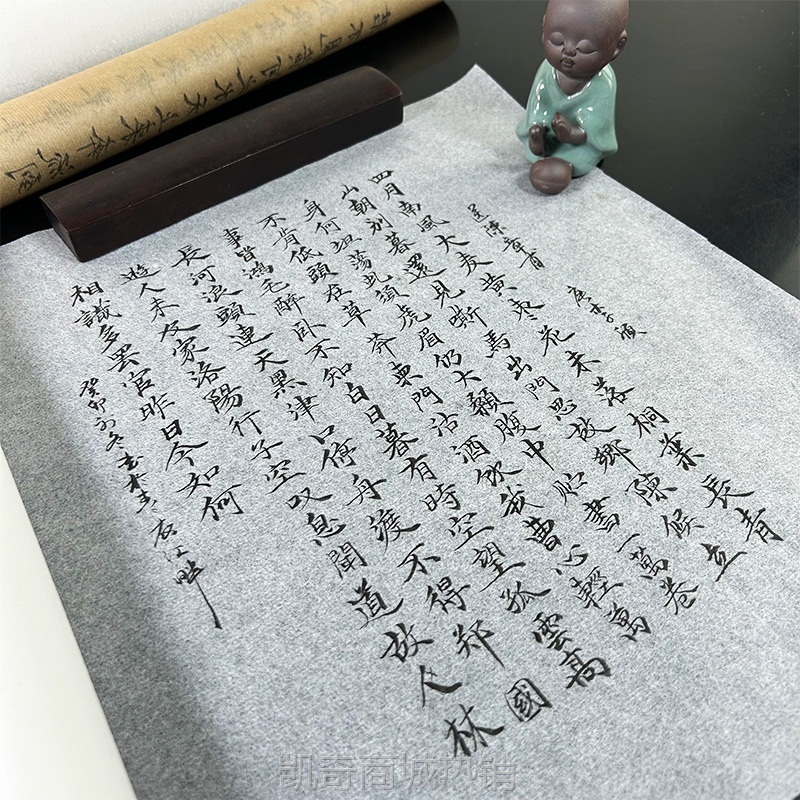 送陳章甫 唐李頎
四月南風大麦黄枣花未落桐葉長青
山朝别暮還見嘶馬出門思故鄉陳候立
身何坦荡虬須虎眉仍大顙腹中贮書一萬卷
不肯低頭在草莽東門沽酒饮我曹心輕萬
事皆鴻毛醉卧不知白日暮有時空望孤雲高
長河浪頭連天黑津口停舟渡不得郑國
遊人未及家洛陽行子空叹息聞道故人林
相識多罢官昨日今如何
癸卯初冬 江畔
凯奇商城热销